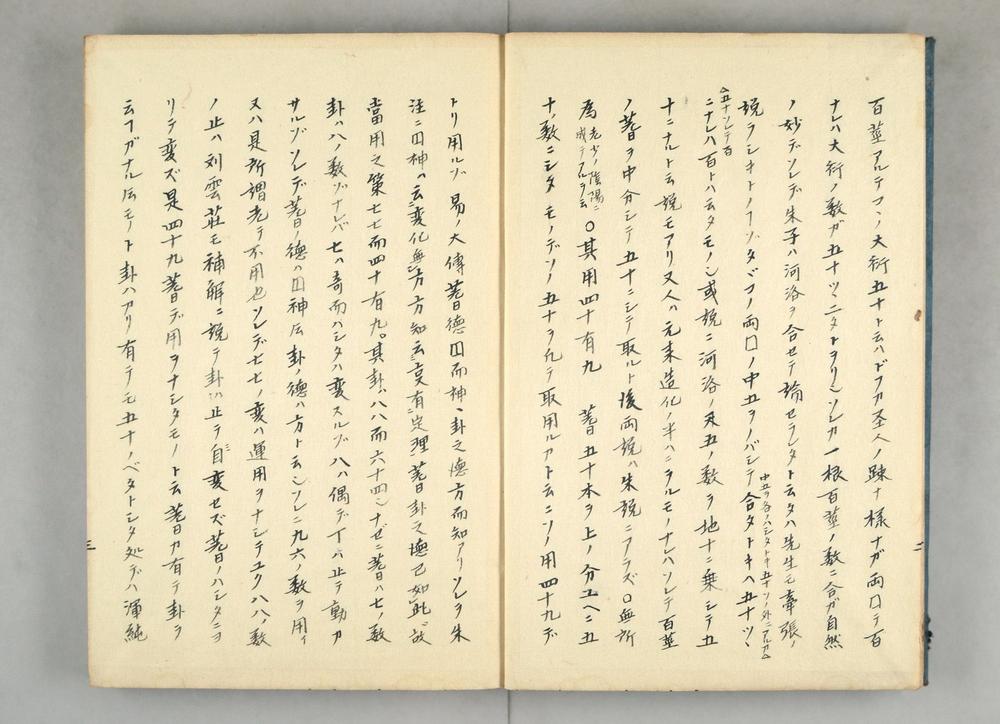 百莖アルテコソ大衍五十ト云ハドフカ圣人ノ踈ナ様ナガ両口テ百
ナレハ大衍ノ数ガ五十ツヽニタトヲリソレカ一根百莖ノ数ニ合ガ自然
ノ妙デソレデ朱子ハ河洛ヲ合セテ論セラレタト云タハ先生モ牽張ノ
説ラシキトノフゾタゞコノ両口ノ中五ヲノバシテ合タトキハ五十ツヽ
中五ヲ各ノハシタトキ五十ソノ外ニアルカ
五十ソレテ百
ニナレハ百トハ云タモノ或説ニ河洛ノ天五ノ数ヲ地十ニ乗シテ五
十ニナルト云説モアリ又人ハ元来造化ノ半ハニヲルモノナレハソレテ百莖
ノ蓍ヲ中分シテ五十ニシテ取ルト後両説ハ朱説ニアラズ○無所
為 老少ノ陰陽ニ
成テアルヲ云
○其用四十有九 蓍五十本ヲ上ノ分ユヘニ五
十ノ数ニシタモノデソノ五十ヲ凡テ取用ルカト云ニソノ用四十九デ
トリ用ルゾ 易ノ大傳蓍德囙而神、卦之德方而知アリソレヲ朱
注ニ囙神ハ云変化無方方知云叓有定理蓍卦之德已如此故
當用之策七七而四十有九。其卦ハ八八而六十四ナゼニ蓍ハ七ノ数
卦ハ八ノ数ゾナレバ七ハ奇而ハシタハ変スルゾ八ハ偶デ丁ハ止テ動カ
サルゾソレデ蓍ノ德ハ囙神云卦ノ德ハ方ト云ソレニ九六ノ数ヲ用イ
又ハ是所謂老テ不用也ソレデ七七ノ変ハ運用ヲナシテユク八八ノ数
ノ止ハ刘雲莊モ補解ニ説テ卦ハ止テ自変セズ蓍ノハシタニヨ
リテ変ズ是四十九蓍デ用ヲナシタモノト云蓍カ有テ卦ヲ
云フガナル云モノト卦ハカリ有テモ五十ノベタトシタ処デハ渾純
二
三